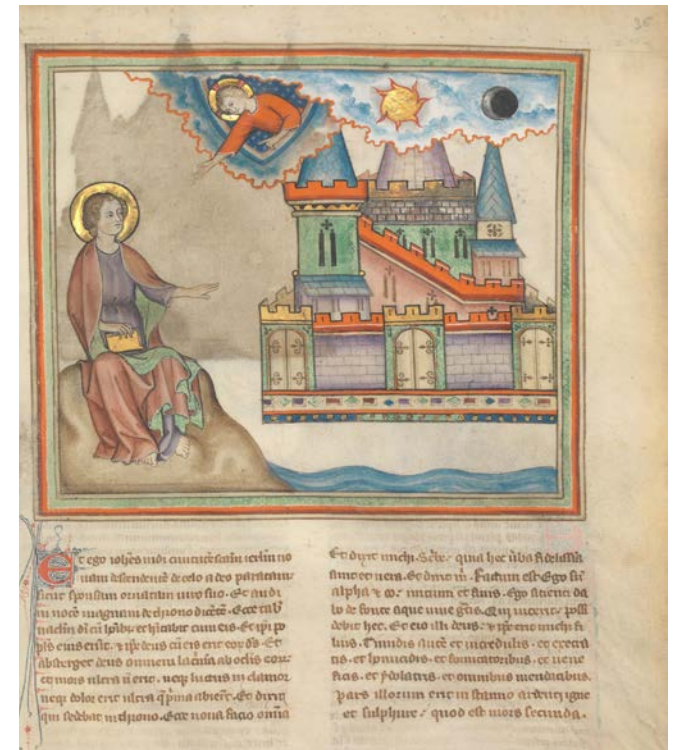 Et ego iohēs uidi ciuitatē sc̄am ierl̄m no
uam descendente de celo a deo paratam
sicut sponsam ornatam uiro suo. Et audi
ui uocē magnam de throno dicētē. Ecce tab̄
naclm̄ di cū hoībꝫ et hitabit cum eis. Et ip̄i po
pl̄s eius erūt. et ip̄e deus cū eis erit eoꝝ ds̄. Et
absterget deus omnem lacͥmā ab oclis eoꝝ
et mors ultra nō erit. neqꝫ luctus nec clamor
neqꝫ dolor erit ultra q̄ pͥma abierūt. Et dixit
qui sedebat in throno. Ecce noua facio omīa
Et dixit michi. Sc̄be. quia hec ūba fidelissīa
sunt et uera. Et dixit m̄. Factum est. Ego sū
alpha et ω. initium et finis. Ego sitienti da
bo de fonte aque uiue gͣtis. Qui uicerit. possi
debit hec. Et ero illi deus. et ip̄e erit michi fi
lius. Timidis autē et incredulis. et execra
tis. et homicidis. et fornicatoribus. et uene
ficis. et ydolatris. et omnibus mendacibus.
pars illorum erit in stanno ardenti igne
et sulphure. quod est mors secunda.